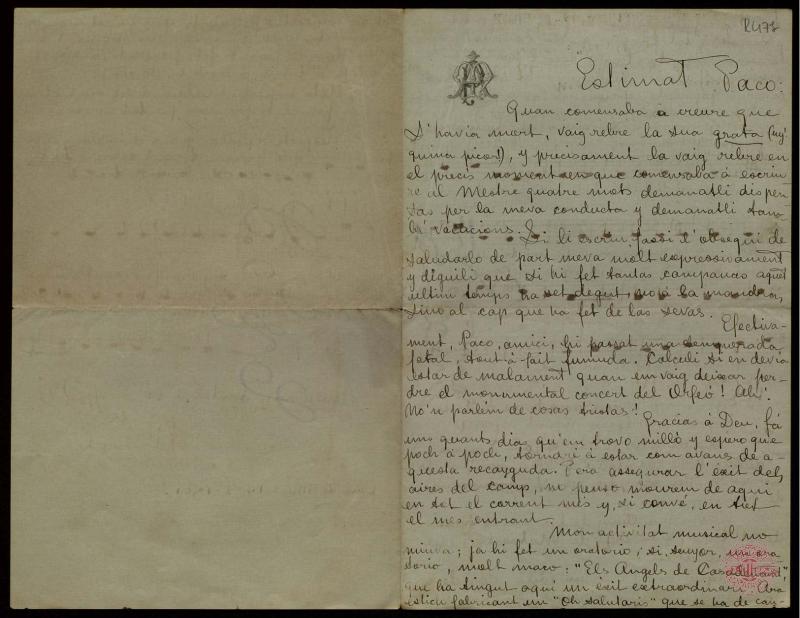 R478
Estimat Paco:
Quan comensaba á creure que
s'havia mort, vaig rebre la sua grata (uy!
quina picor!), y precisament la vaig rebre en
el precís moment en que comensaba á escriu
re al Mestre quatre mots demanatli dispen
sas per la meva conducta y demanatli tam
bé vacacions. Si li escriu, fassi l'obsequi de
saludarlo de part meva molt expressivament
y diguili que si hi fet tantas campanas aquet
ultim temps ha set degut, no á la mandra,
sino al cap que ha fet de las sevas.
Efectiva-
ment, Paco, amici, hi passat una temporada
fatal, tout-á-fait fumuda. Calculi si en devia
estar de malament quan em vaig deixar per-
dre el monumental concert del Orfeó! Ah!
No'n parlém de cosas tristas!
Gracias á Deu, fá
uns quants dias qu'em trovo milló y espero que
poch á poch, tornaré á estar com avans de a-
questa recayguda. Pera assegurar l'éxit dels
aires del camp, no penso mourem de aquí
en tot el corrent mes y, si convé, en tot
el mes entrant.
Mon activitat musical no
minva; ja hi fet un oratorio; si, senyor, un ora
torio, molt maco: "Els Angels de
que ha tingut aquí un éxit extraordinari. Ara
estich fabricant un "Oh salutaris" que se ha de can-